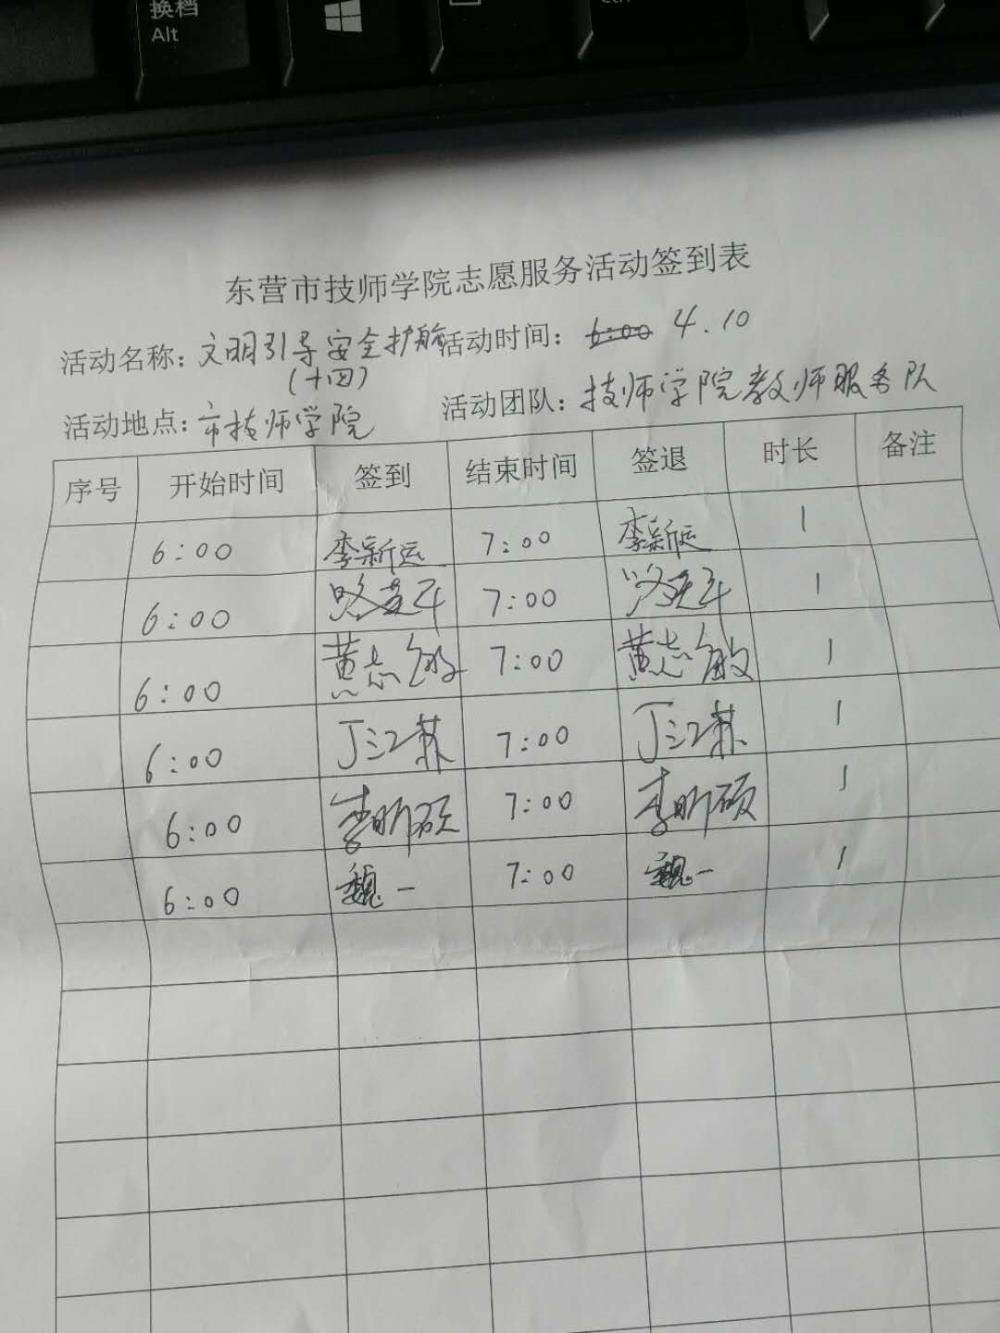 换档
Alt
Ctrl
东营市技师学院志愿服务活动签到表
活动名称：文明引导安全护航 活动时间：6:00 4.10
（十四）
活动地点：市技师学院 活动团队：技师学院教师服务队
序号 开始时间 签到 结束时间 签退 时长 备注
6:00 李新运 7:00 李新运 1
6:00 7:00 1
6:00 黄志敏 7:00 黄志敏 1
6:00 丁江林 7:00 丁江林 1
6:00 李昕硕 7:00 李昕硕 1
6:00 魏一 7:00 魏一 1